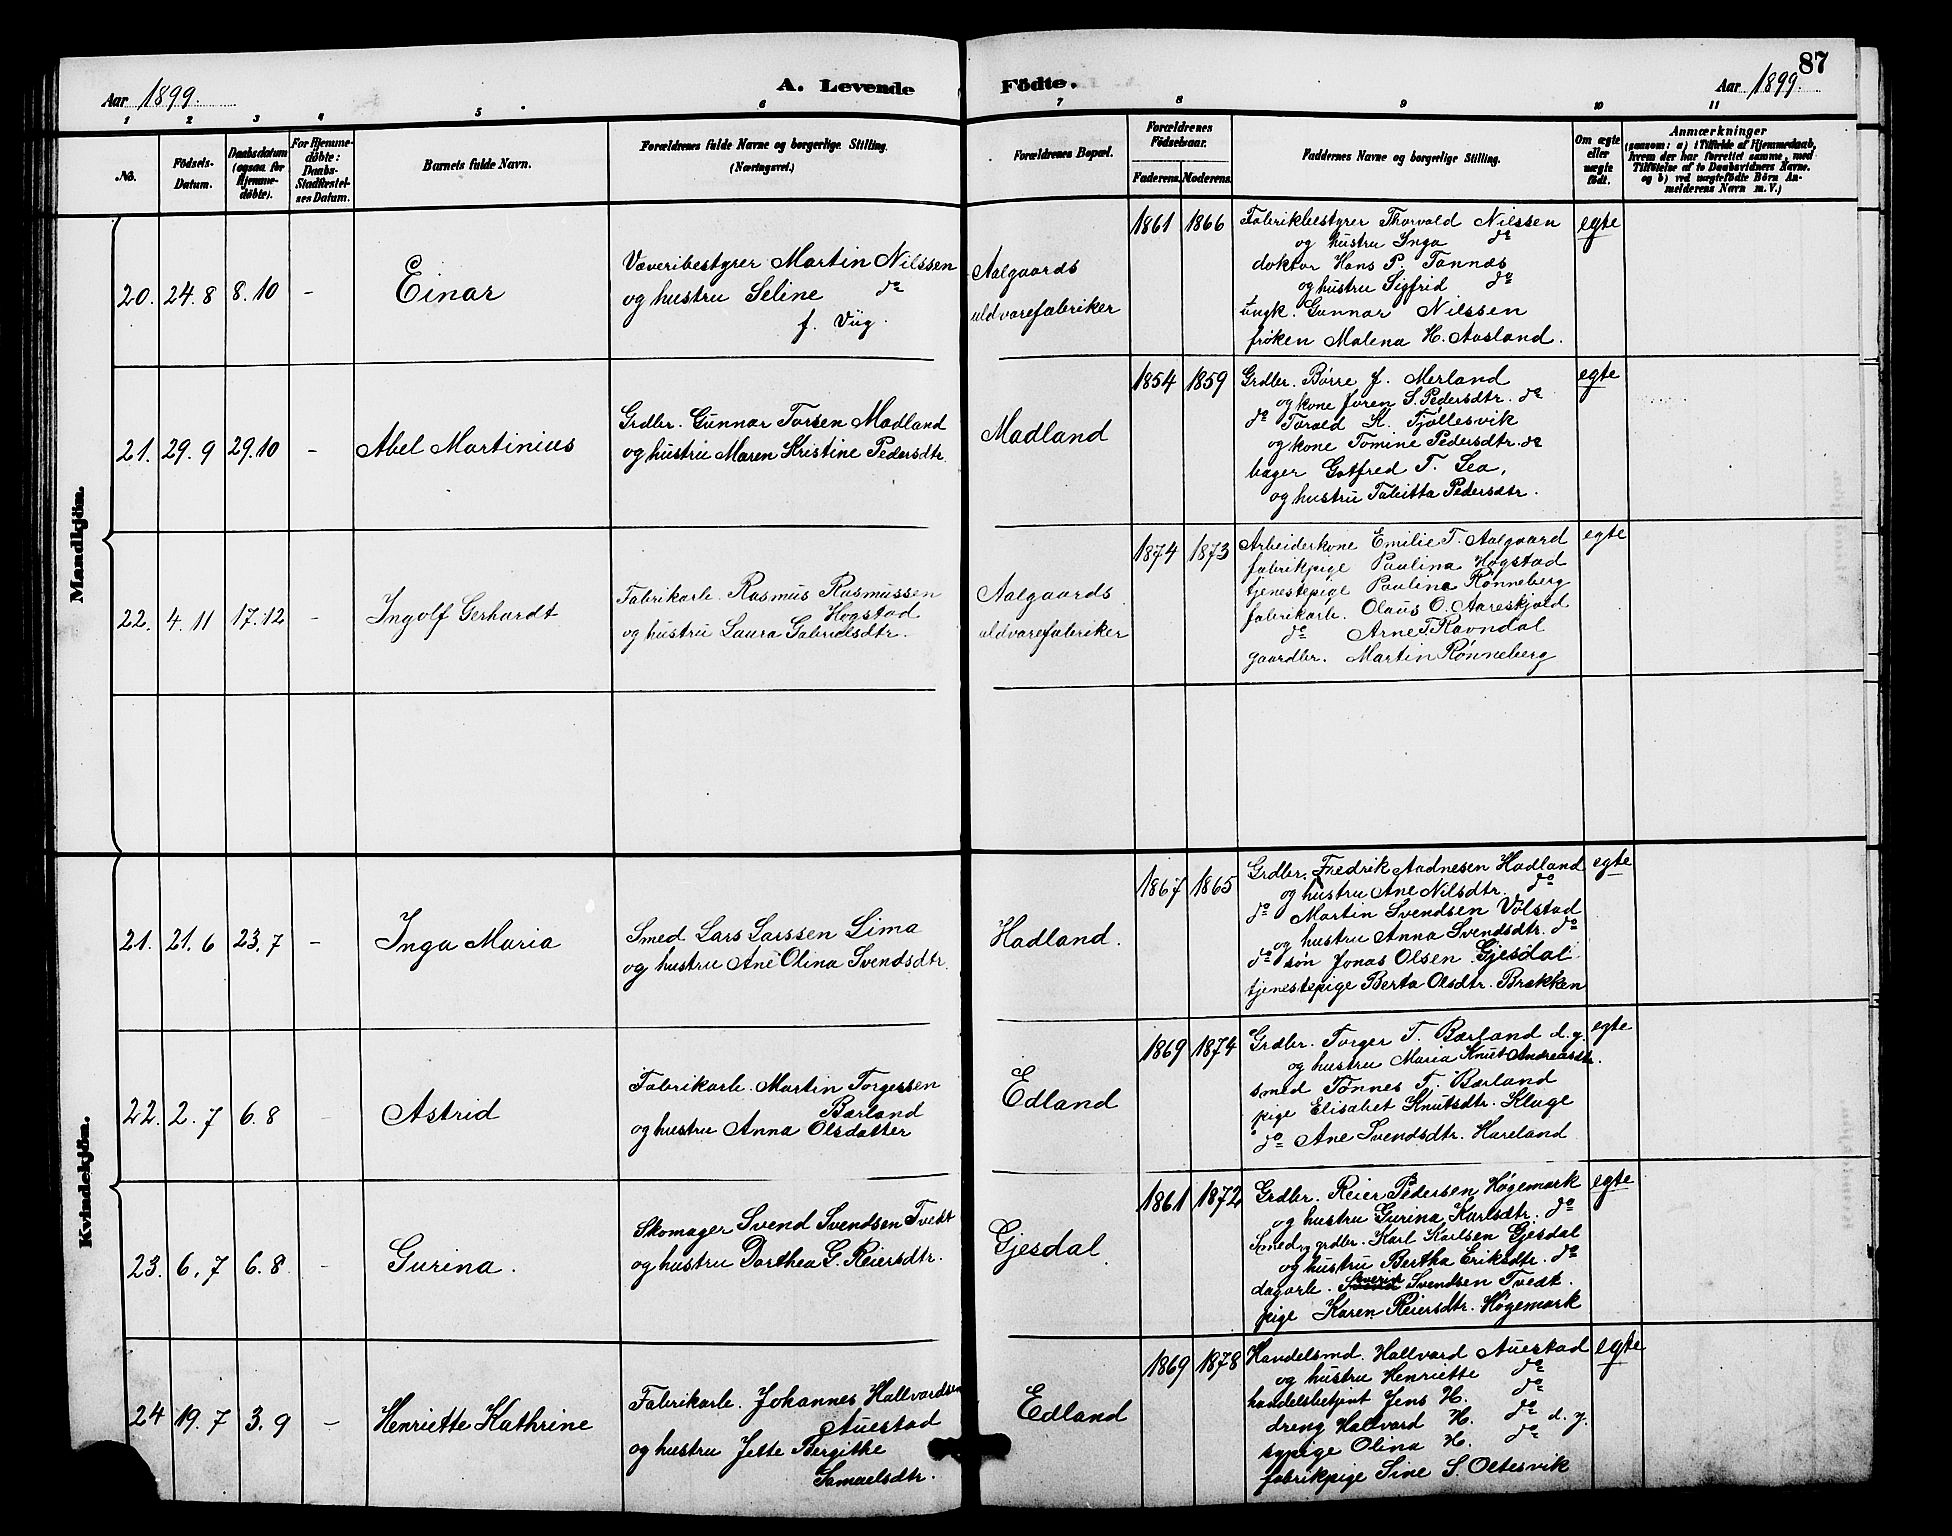 87
Aar 1899.
A. Levende
Födte.
Aar 1899.
1 2 3 4 5 6 7 8 9 10 11
No.
Födsels-
Datum.
Daabsdatum
(ogsaa for
Hjemme-
døbte).
For Hjemme-
døbte:
Daabs-
Stadfæstel-
ses Datum.
Barnets fulde Navn.
Forældrenes fulde Navne og borgerlige Stilling.
(Næringsvei.)
Forældrenes Bopæl.
Forældrenes
Födselsaar.
Faderens. Moderens.
Faddernes Navne og borgerlige Stilling.
Om ægte
eller
uægte
födt.
Anmærkninger
(saasom: a) i Tilfælde af Hjemmedaab,
hvem der har forrettet samme, med
Tilföielse af to Daabsvidners Navne.
og b) ved uægtefödte Börn An-
melderens Navn m. V.)
Mandkjön.
20. 24.8 8.10 - Einar
Væveribestyrer Martin Nilssen
og hustru Seline do
f. Viig.
Aalgaards
uldvarefabriker
1861 1866
Fabrikbestyrer Thorvald Nilssen
og hustru Inga do
doktor Hans P. Tannæs
og hustru Sigfrid do
ungk. Gunnar Nilssen
frøken Malena H. Aasland.
egte
21. 29.9 29.10 - Abel Martinius
Grdbr. Gunnar Torsen Madland
og hustru Maren Kristine Pedersdtr.
Madland
1854 1859
Grdbr. Børre J. Merland
og kone Joren S. Pedersdtr. do
do Torald K. Fjøllesvik
og kone Tomine Pedersdtr. do
bager Gotfred T. Lea,
og hustru Tabitta Pedersdtr.
egte
22. 4.11 17.12 - Ingolf Gerhardt
Fabrikarb. Rasmus Rasmussen
Høgstad
og hustru Laura Gabrielsdtr.
Aalgaards
uldvarefabriker
1874 1873
Arbeiderkone Emilie T. Aalgaard
fabrikpige Paulina Høgstad
tjenestepige Paulina Rønneberg
fabrikarb. Olaus O. Aareskjold
do Arne T. Ravndal
gaardbr. Martin Rønneberg
egte
Kvindekjön.
21. 21.6 23.7 - Inga Maria
Smed Lars Larssen Lima
og hustru Ane Olina Svendsdtr.
Hadland.
1867 1865
Grdbr. Fredrik Aadnesen Hadland
og hustru Ane Nilsdtr. do
do Martin Svendsen Vølstad
og hustru Anna Svendsdtr. do
do søn Jonas Olsen Gjesdal
tjenestepige Berta Olsdtr. Brekken
egte
22. 2.7 6.8 - Astrid
Fabrikarb. Martin Torgersen
Bærland
og hustru Anna Olsdatter
Edland
1869 1874
Grdbr. Torger T. Bærland d.y.
og hustru Maria Knut Andreasdtr.
smed Tønnes T. Bærland
pige Elisabet Knutsdtr. Kluge
do Ane Svendsdtr. Hareland
egte
23. 6.7 6.8 - Gurina.
Skomager Svend Svendsen Tvedt
og hustru Dorthea G. Reiersdtr.
Gjesdal
1861 1872
Grdbr. Reier Pedersen Høgemark
og hustru Gurina Karlsdtr. do
Smed og grdbr. Karl Karlsen Gjesdal
og hustru Bertha Eriksdtr. do
dagarb. Svendsen Tvedt.
pige Karen Reiersdtr. Høgemark
egte
24 19.7 3.9 - Henriette Kathrine
Fabrikarb. Johannes Hallvardsen
Auestad
og hustru Jette Bergitke
Samuelsdtr.
Edland
1869 1878
Handelsmd. Hallvard Auestad
og hustru Henriette do
handelsbetjent Jens H. do
dreng Hallvard H. do d.y.
sypige Olina H. do
fabrikpige Sine S. Oltesvik
egte